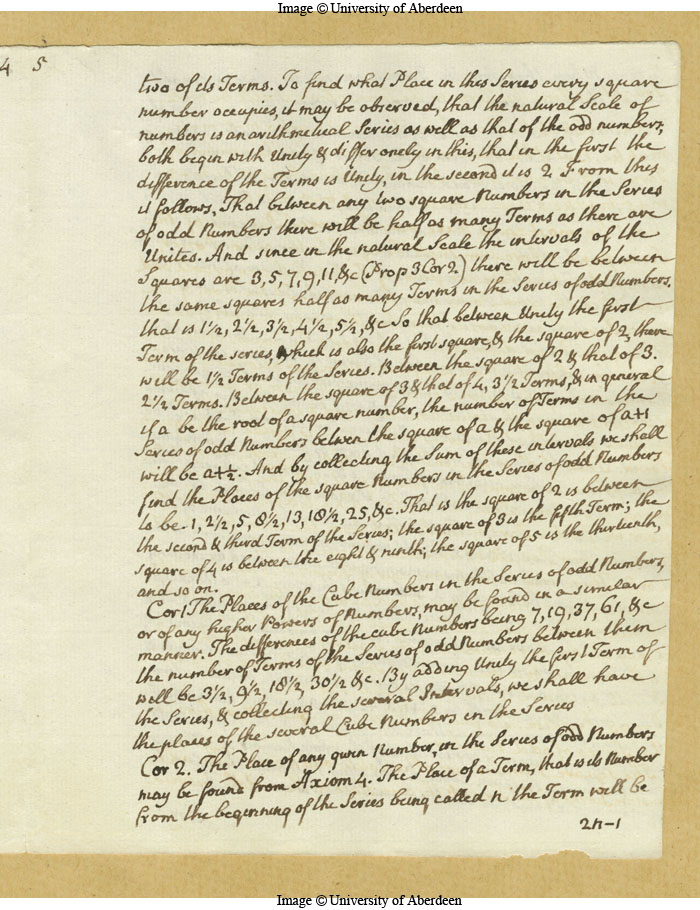 Image © University of Aberdeen
4 5
two of its Terms. To find what Place in this Series every square
number occupies, it may be observed, that the natural Scale of
numbers is an arithmetical Series as well as that of the odd numbers,
both begin with Unity & differ onely in this, that in the first the
difference of the Terms is Unity, in the second it is 2 From this
it follows, That between any two square Numbers in the Series
of odd Numbers there will be half as many Terms as there are
Unites. And since in the natural Scale the intervals of the
Squares are 3, 5, 7, 9, 11, &c (Prop 3 Cor 2.) there will be between
the same squares half as many Terms in the Series of odd Numbers.
that is 1½, 2½, 3½, 4½, 5½, &c So that between Unity the first
Term of the series, which is also the first square, & the square of 2, there
will be 1½ Terms of the Series. Between the square of 2 & that of 3.
2½ Terms. Between the square of 3 & that of 4, 3½ Terms, & in general
if a be the root of a square number, the number of Terms in the
Series of odd Numbers betwen the square of a & the square of a+1
will be a+½. And by collecting the Sum of these intervals we shall
find the Places of the square Numbers in the Series of odd Numbers
to be. 1, 2½, 5, 8½, 13, 18½, 25, &c. That is the square of 2 is between
the second & third Term of the Series; the square of 3 is the fifth Term; the
square of 4 is between the eight & ninth; the square of 5 is the thirteenth,
and so on.
Cor 1 The Places of the Cube Numbers in the Series of odd Numbers,
or of any higher Powers of Numbers, may be found in a similar
manner. The differences of the cube Numbers being 7, 19, 37, 61, &c
the number of Terms of the Series of odd Numbers between them
will be 3½, 9½, 18½, 30½ &c. By adding Unity the first Term of
the Series, & collecting the several Intervals, we shall have
the places of the several Cube Numbers in the Series
Cor 2. The Place of any given Number, in the Series of odd Numbers
may be found from Axiom 4. The Place of a Term, that is its Number
from the beginning of the Series being called n the Term will be
2n-1
Image © University of Aberdeen